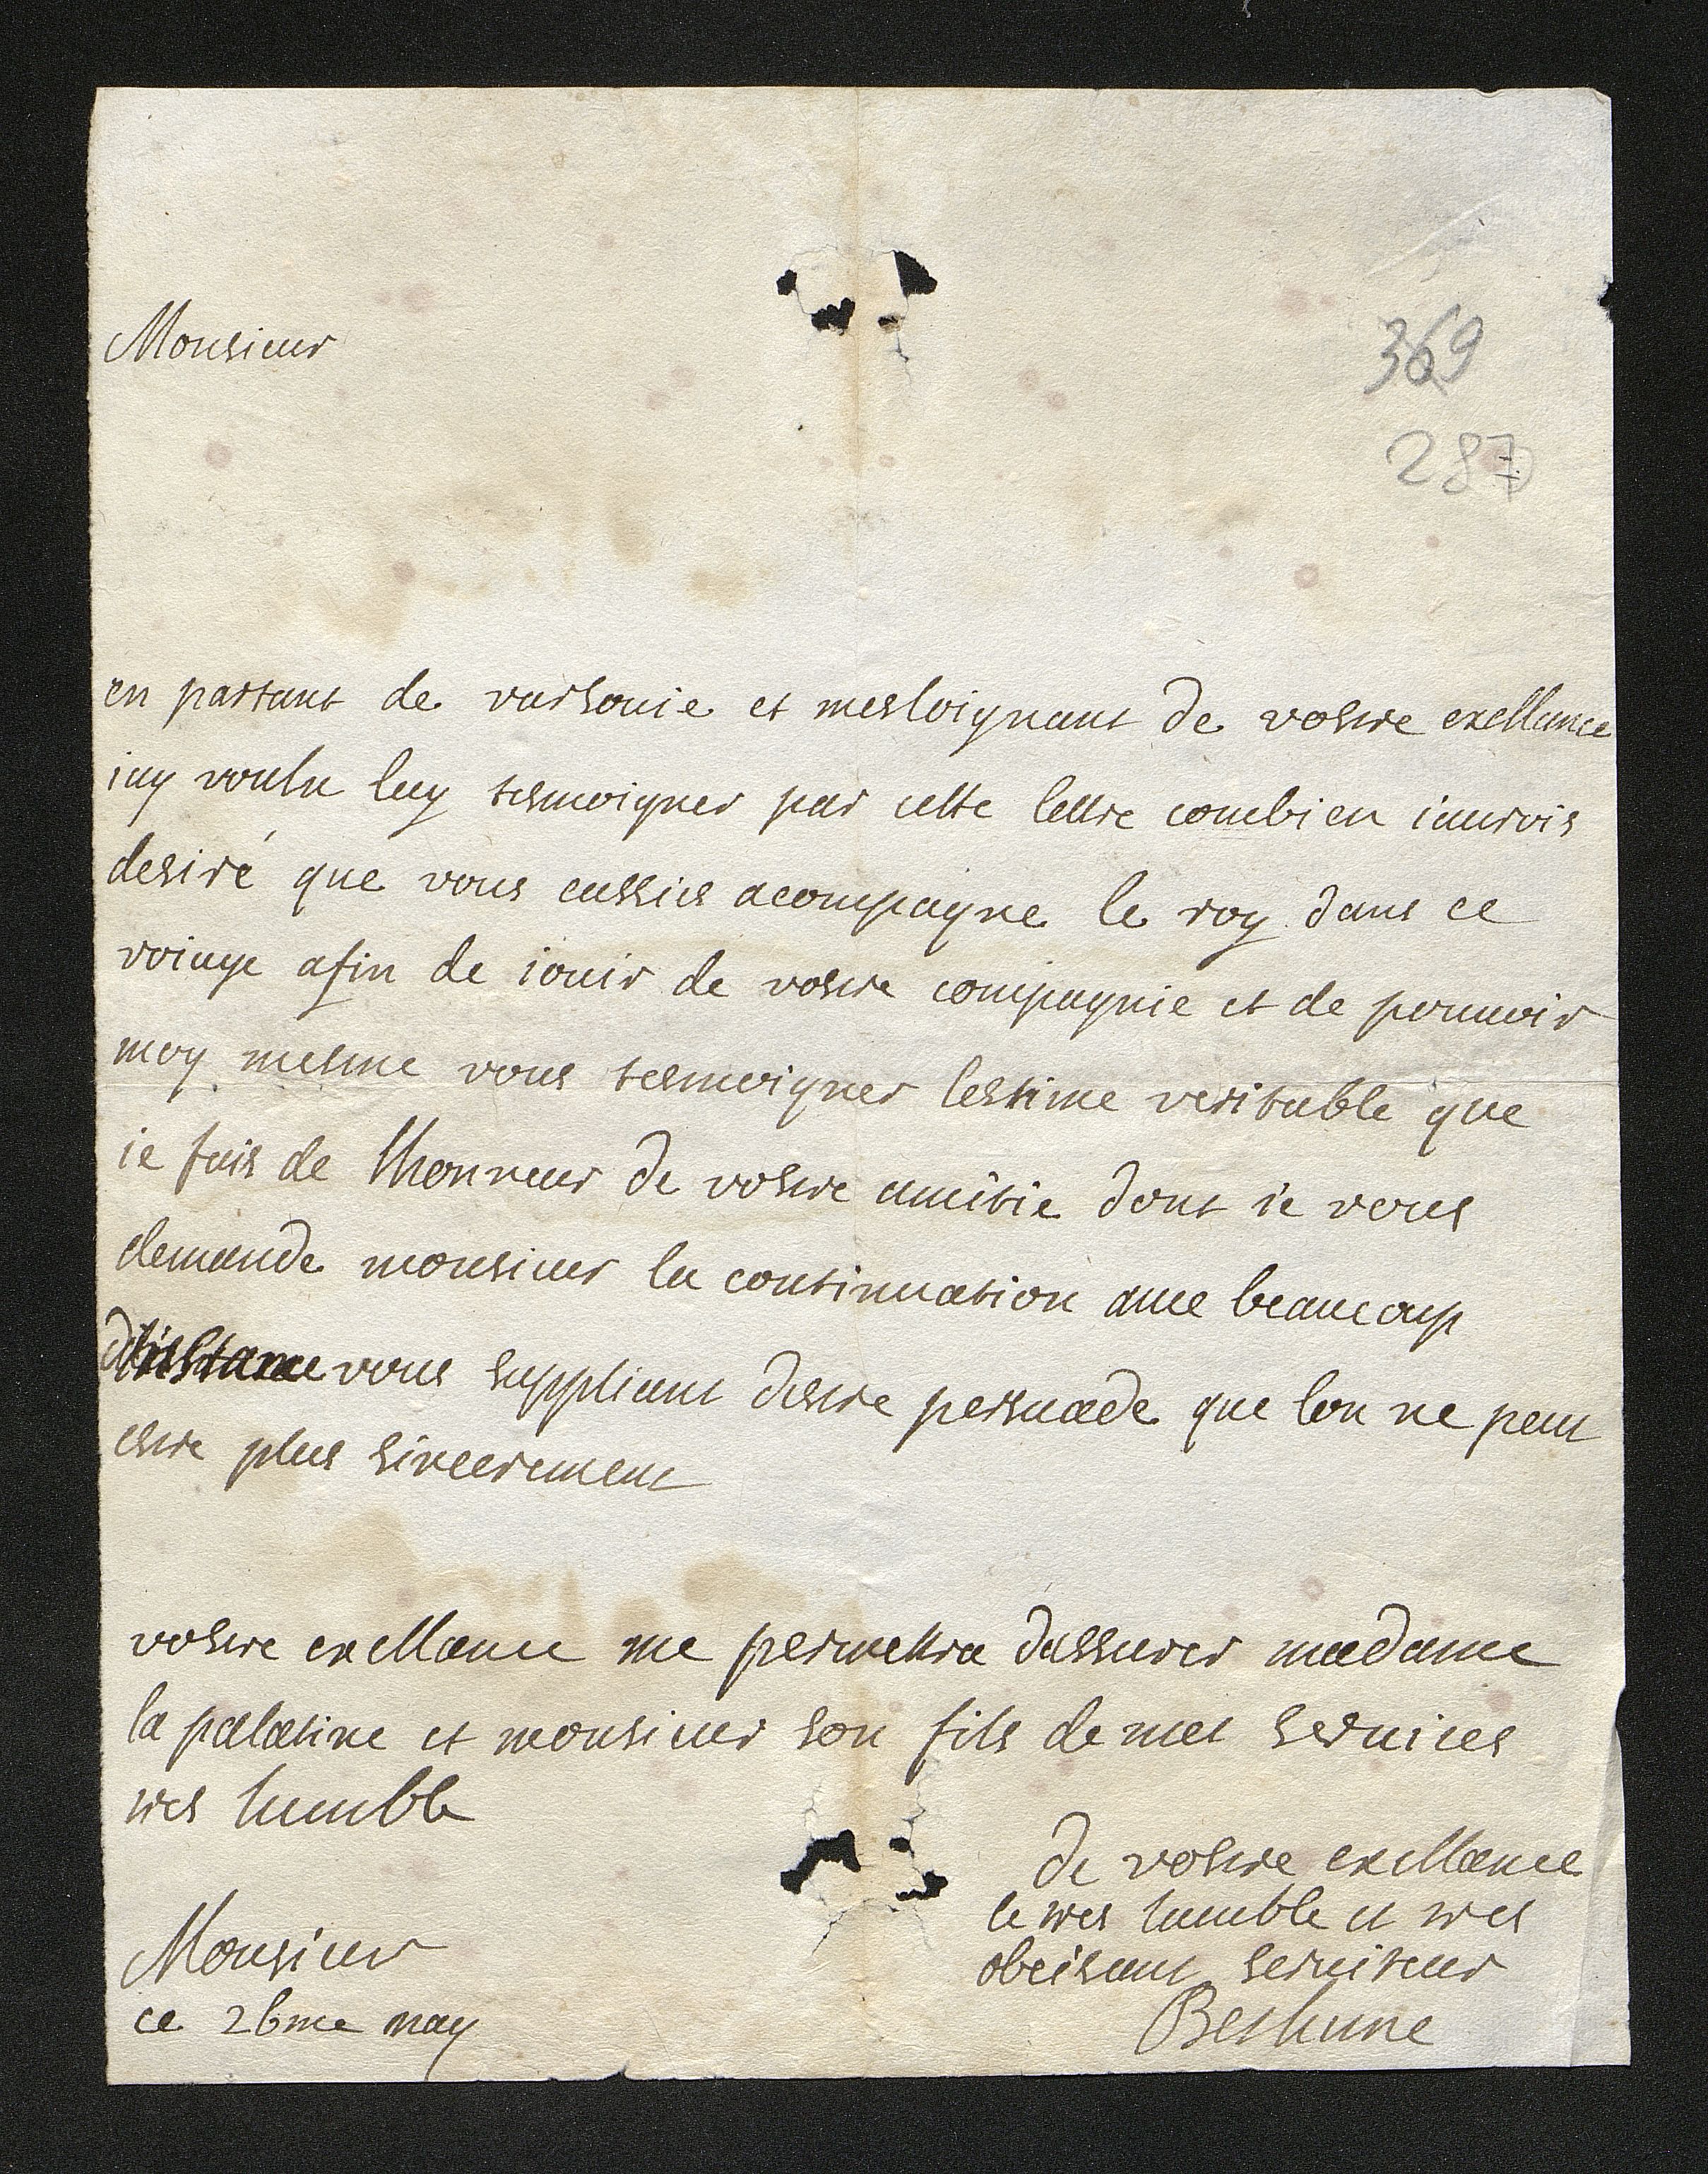 Monsieur
369
287
en partant de varsouie et mesloignant de vostre exellance
iay voulu luy tesmoigner par cette lettre combien iaurois
desiré que vous eussies acompagne le roy dans ce
voiage afin de iouir de vostre compagnie et de pouuoir
moy mesme vous tesmoigner lestime veritable que
ie fais de lhonneur de vostre amitie dont ie vous
demande monsieur la continuation auec beaucoup
dinstance vous suppliant destre persuade que lon ne peut
estre plus sincerement
vostre exellance me permettra dassurer madame
la palatine et monsieur son fils de mes seruices
tres humble
de vostre exellance
le tres humble et tres
obeisant seruiteur
Bethune
Monsieur
ce 26me may